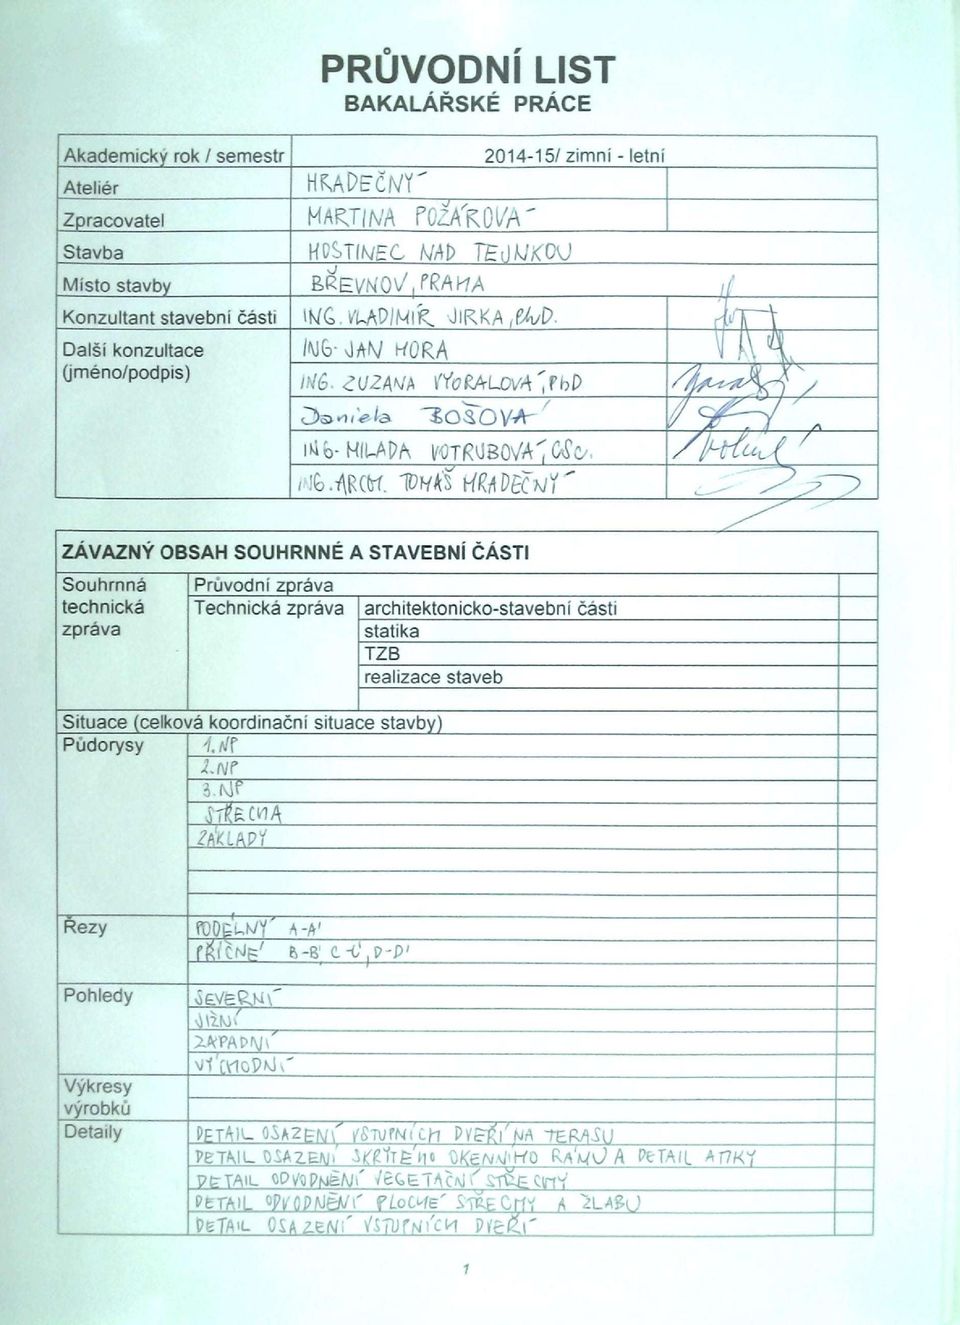 PRŮVODNÍ LIST
BAKALÁŘSKÉ PRÁCE
Akademický rok / semestr 2014-15/ zimní - letní
Ateliér HRADEČNÝ
Zpracovatel MARTINA POŽÁROVÁ
Stavba HOSTINEC NAD TEJNKOU
Místo stavby BŘEVNOV, PRAHA
Konzultant stavební části ING. VLADIMÍR JIRKA, PhD.
Další konzultace ING. JAN HORA
(jméno/podpis) ING. ZUZANA VYORALOVÁ, PhD
Daniela BOŠOVÁ
ING. MILADA VOTRUBOVÁ, CSc.
ING. ARCH. TOMÁŠ HRADEČNÝ
ZÁVAZNÝ OBSAH SOUHRNNÉ A STAVEBNÍ ČÁSTI
Souhrnná Průvodní zpráva
technická Technická zpráva architektonicko-stavební části
zpráva statika
TZB
realizace staveb
Situace (celková koordinační situace stavby)
Půdorysy 1.NP
2.NP
3.NP
STŘECHA
ZÁKLADY
Řezy PODÉLNÝ A-A'
PŘÍČNÉ B-B', C-C', D-D'
Pohledy SEVERNÍ
JIŽNÍ
ZÁPADNÍ
VÝCHODNÍ
Výkresy
výrobků
Detaily DETAIL OSAZENÍ VSTUPNÍCH DVEŘÍ NA TERASU
DETAIL OSAZENÍ SKRYTÉHO OKENNÍHO RÁMU A DETAIL ATIKY
DETAIL ODVODNĚNÍ VEGETAČNÍ STŘECHY
DETAIL ODVODNĚNÍ PLOCHÉ STŘECHY A ŽLABU
DETAIL OSAZENÍ VSTUPNÍCH DVEŘÍ
1